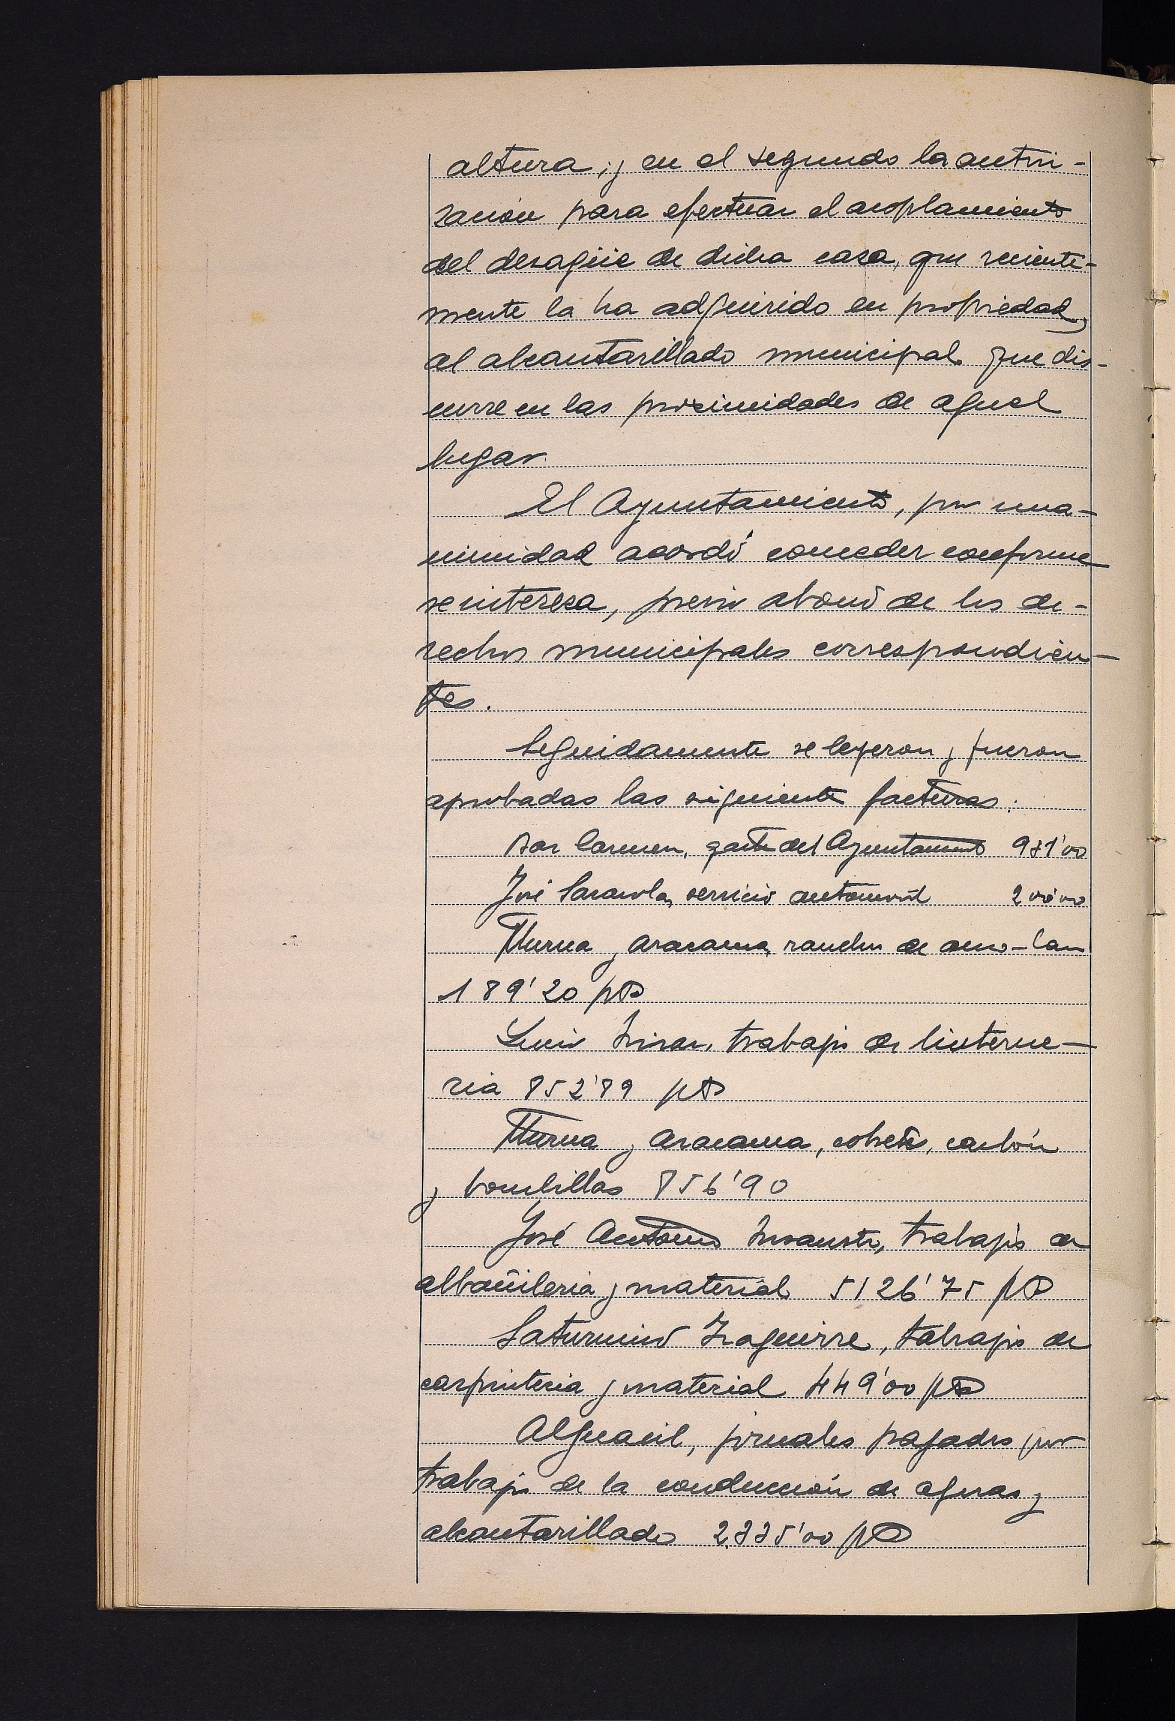 altura; y en el segundo la autori-
zación para efectuar el acoplamiento
del desagüe de dicha casa, que reciente-
mente la ha adquirido en propiedad,
al alcantarillado municipal que dis-
curre en las proximidades de aquel
lugar.
El Ayuntamiento, por una-
nimidad acordó conceder conforme
se interesa, previo abono de los de-
rechos municipales correspondien-
tes.
Seguidamente se leyeron y fueron
aprobadas las siguiente facturas:
Sor Carmen, gasto del Ayuntamiento
José servicio automovil 200'00
Iturria y Aracama, de
189'20 pts
Luis trabajos de linterne-
ria 852'89 pts
Iturria y Aracama, cohetes, carbón
y bombillas 856'90
José Antonio Insausti, trabajos de
albañileria y material 5126'75 pts
Saturnino Izaguirre, tabrajos de
carpinteria y material 449'00 pts
Alguacil, jornales pagados por
trabajos de la conducción de aguas y
alcantarillado 2.335'00 pts